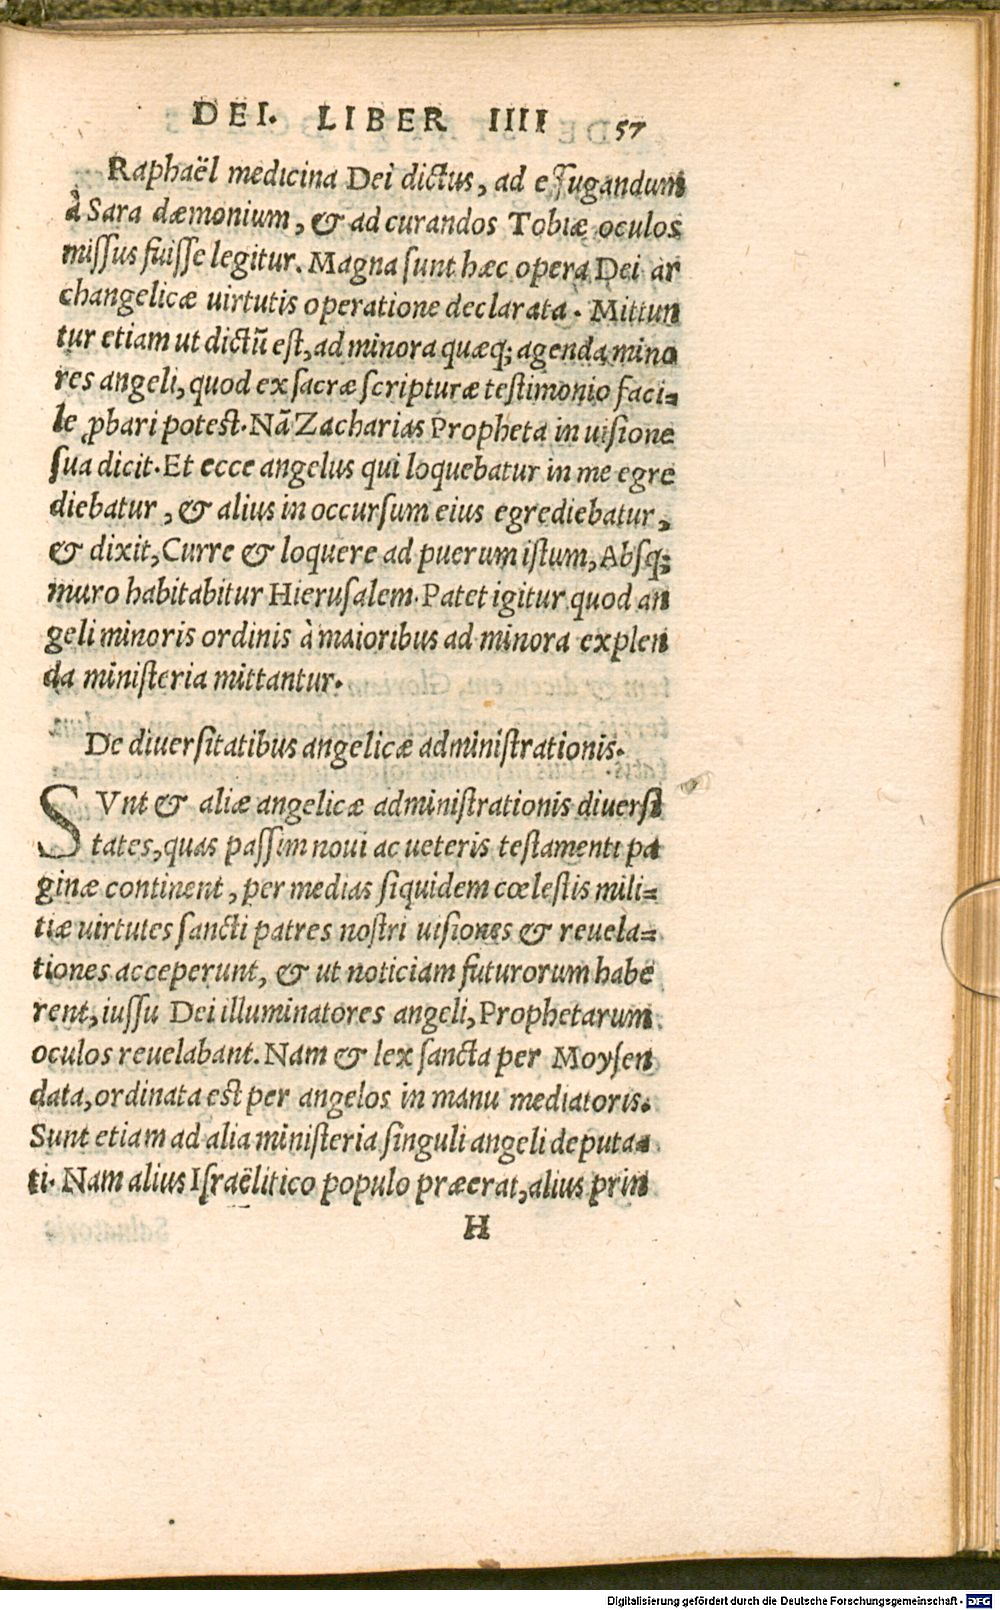 DEI. LIBER IIII 57
Raphaël medicina Dei dictus, ad effugandum
à Sara dæmonium, & ad curandos Tobiæ oculos
missus fuisse legitur. Magna sunt hæc opera Dei ar
changelicæ uirtutis operatione declarata. Mittun
tur etiam ut dictũ est, ad minora quæq; agenda mino
res angeli, quod ex sacræ scripturæ testimonio faci=
le ꝓbari potest. Nã Zacharias Propheta in uisione
sua dicit. Et ecce angelus qui loquebatur in me egre
diebatur, & alius in occursum eius egrediebatur,
& dixit, Curre & loquere ad puerum istum, Absq;
muro habitabitur Hierusalem. Patet igitur quod an
geli minoris ordinis à maioribus ad minora explen
da ministeria mittantur.
De diuersitatibus angelicæ administrationis.
SVnt & aliæ angelicæ administrationis diuersi
tates, quas passim noui ac ueteris testamenti pa
ginæ continent, per medias siquidem cœlestis mili=
tiæ uirtutes sancti patres nostri uisiones & reuela=
tiones acceperunt, & ut noticiam futurorum habe
rent, iussu Dei illuminatores angeli, Prophetarum
oculos reuelabant. Nam & lex sancta per Moysen
data, ordinata est per angelos in manu mediatoris.
Sunt etiam ad alia ministeria singuli angeli deputa=
ti. Nam alius Israëlitico populo præerat, alius prin
H
Digitalisierung gefördert durch die Deutsche Forschungsgemeinschaft - DFG